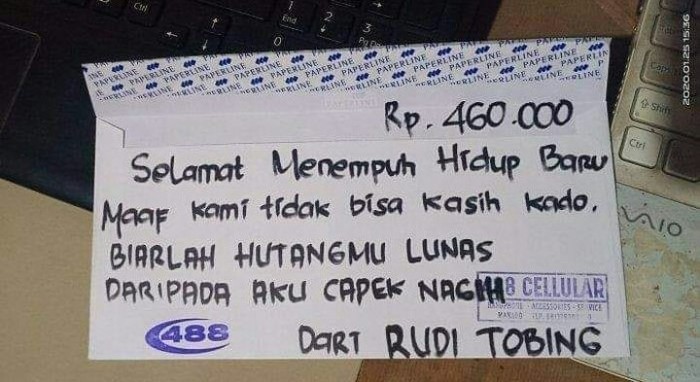 PAPERLINE PAPERLINE PAPERLINE PAPERLINE PAPERLINE
Rp. 460.000
Selamat Menempuh Hidup Baru
Maaf kami tidak bisa kasih kado.
BIARLAH HUTANGMU LUNAS
DARIPADA AKU CAPEK NAGIH
8 CELLULAR
ACCESSORIES - SERVICE
488
Dari RUDI TOBING
VAIO
Ctrl
End
1
2
3
0
Shift
Ctrl
2020.01.25 15:36